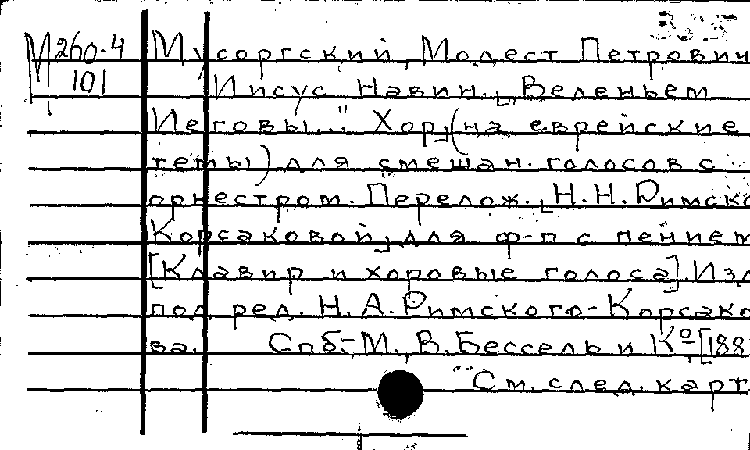 М 260-4 Мусоргский, Модест Петрович
101 Иисус Навин. „Веленьем
Иеговы..." Хор (на еврейские
темы) для смешан. голосов с
оркестром. Перелож. Н.Н. Римско
Корсаковой для ф-п с пением
[Клавир и хоровые голоса]. Изд
под ред. Н.А. Римского-Корсако
ва. Спб.-М., В. Бессель и К° [188
См. след. карт